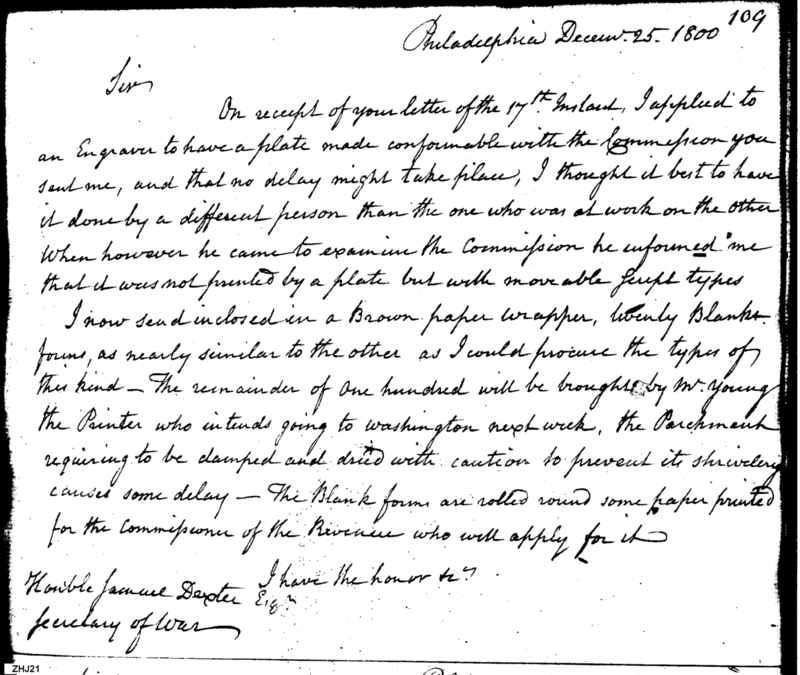 109
Philadelphia Decem. 25. 1800
Sir
On receipt of your letter of the 17th Instant, I applied to
an Engraver to have a plate made conformable with the Commission you
sent me, and that no delay might take place, I thought it best to have
it done by a different person than the one who was at work on the other
When however he came to examine the Commission he informed me
that it was not printed by a plate but with moveable Script types
I now send inclosed in a Brown paper wrapper, twenty Blank
forms, as nearly similar to the other as I could procure the types of
this kind — The remainder of One hundred will be brought by Mr. Young
the Printer who intends going to Washington next week, the Parchment
requiring to be damped and dried with caution to prevent its
causes some delay — The Blank forms are rolled round some paper printed
for the Commissioner of the Revenue who will apply for it
I have the honor &c
Honble Samuel Dexter Esqr
Secretary of War
ZHJ21